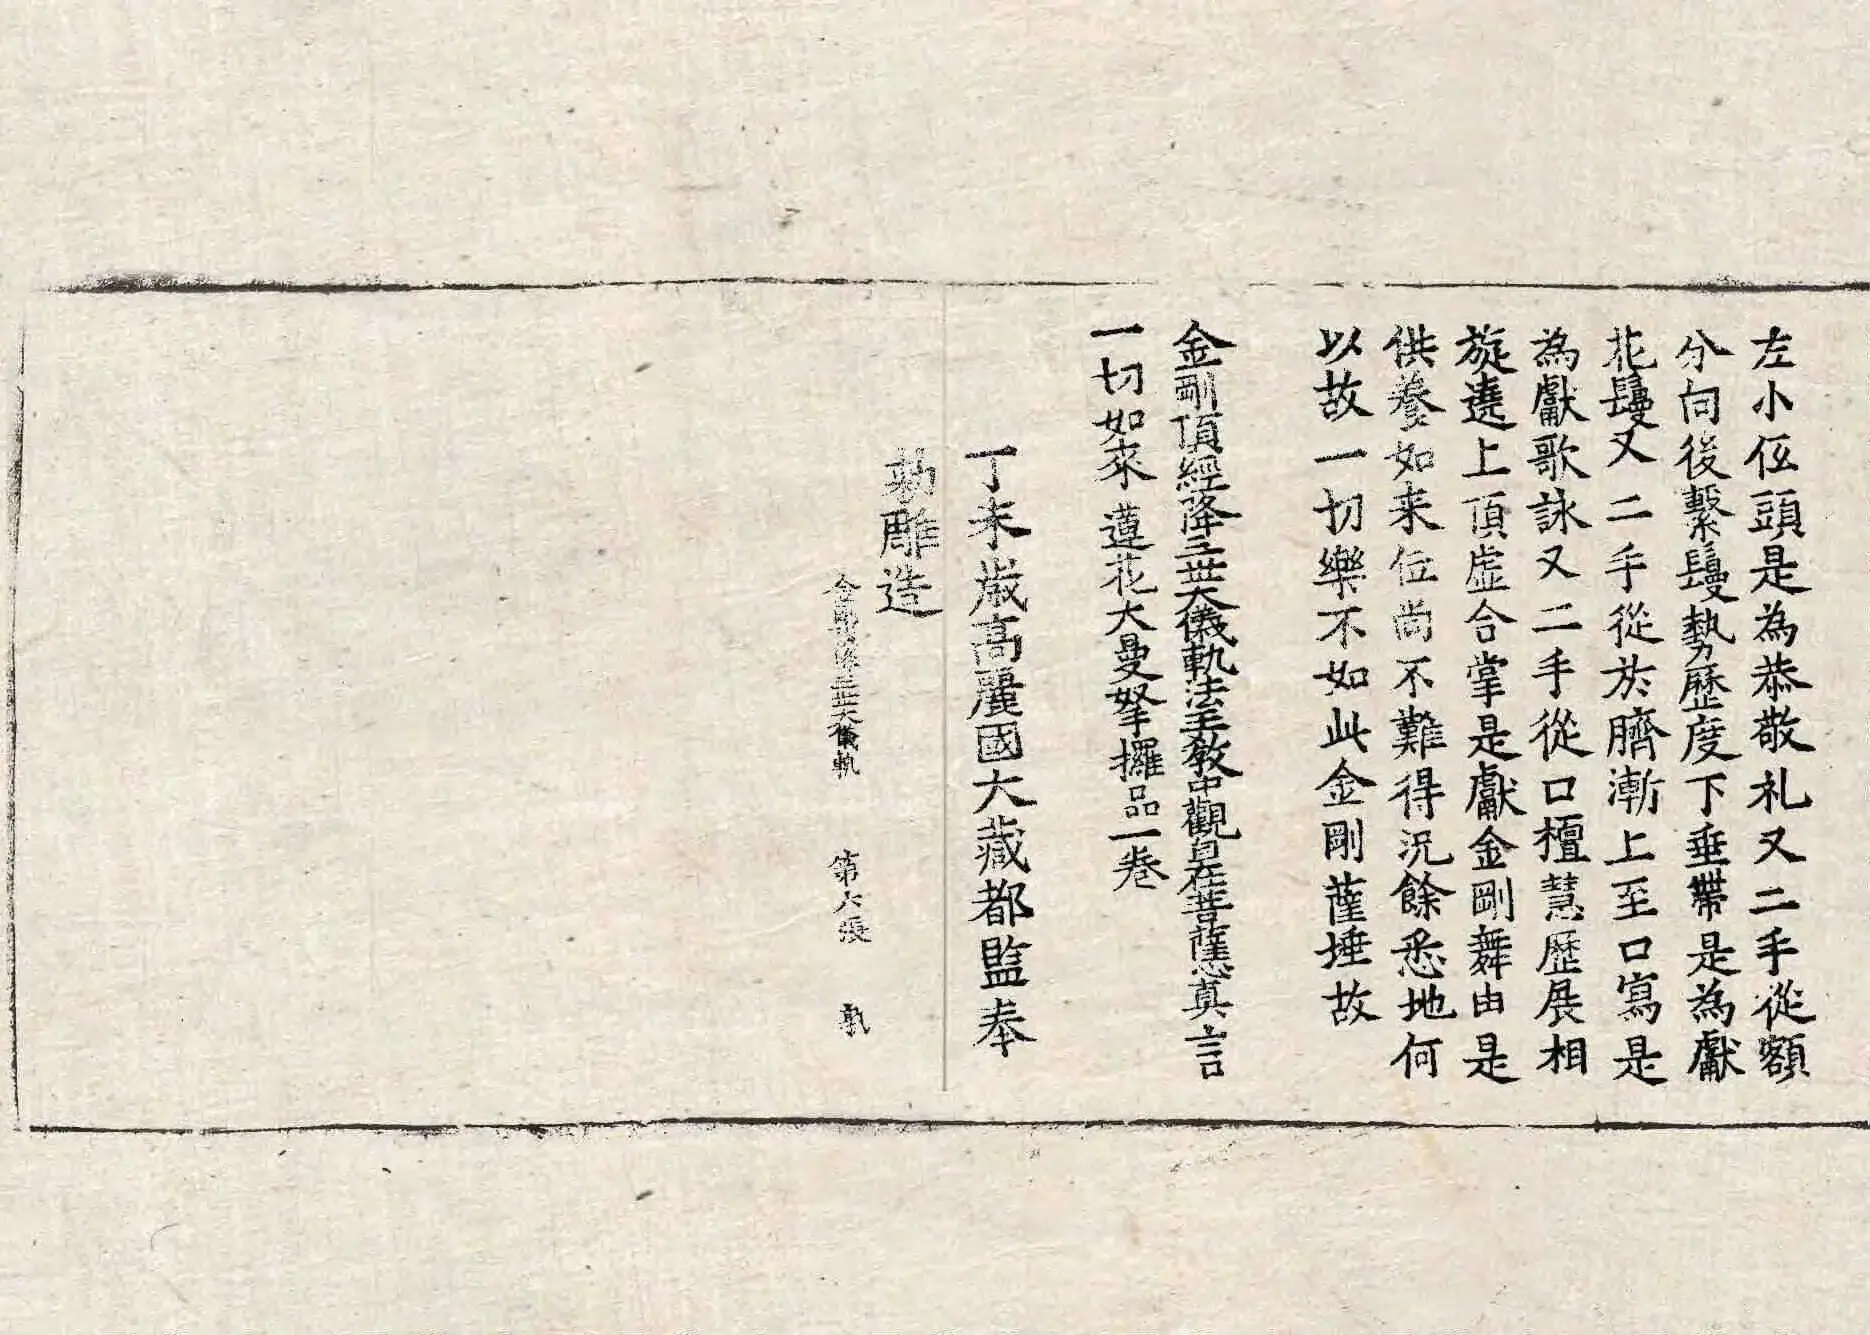 左小伍頭是為恭敬礼又二手從額
分向後繫鬘勢歷度下垂帶是為獻
花鬘又二手從於臍漸上至口寫是
為獻歌詠又二手從口檀慧歷展相
旋遶上頂虛合掌是獻金剛舞由是
供養如来位尚不難得況餘悉地何
以故一切樂不如此金剛薩埵故
金剛頂經降三世大儀軌法王教中觀自在菩薩心真言
一切如來蓮花大曼拏攞品一卷
丁未歲高麗國大藏都監奉
勑雕造
金剛頂降三世大儀軌 第六張 執